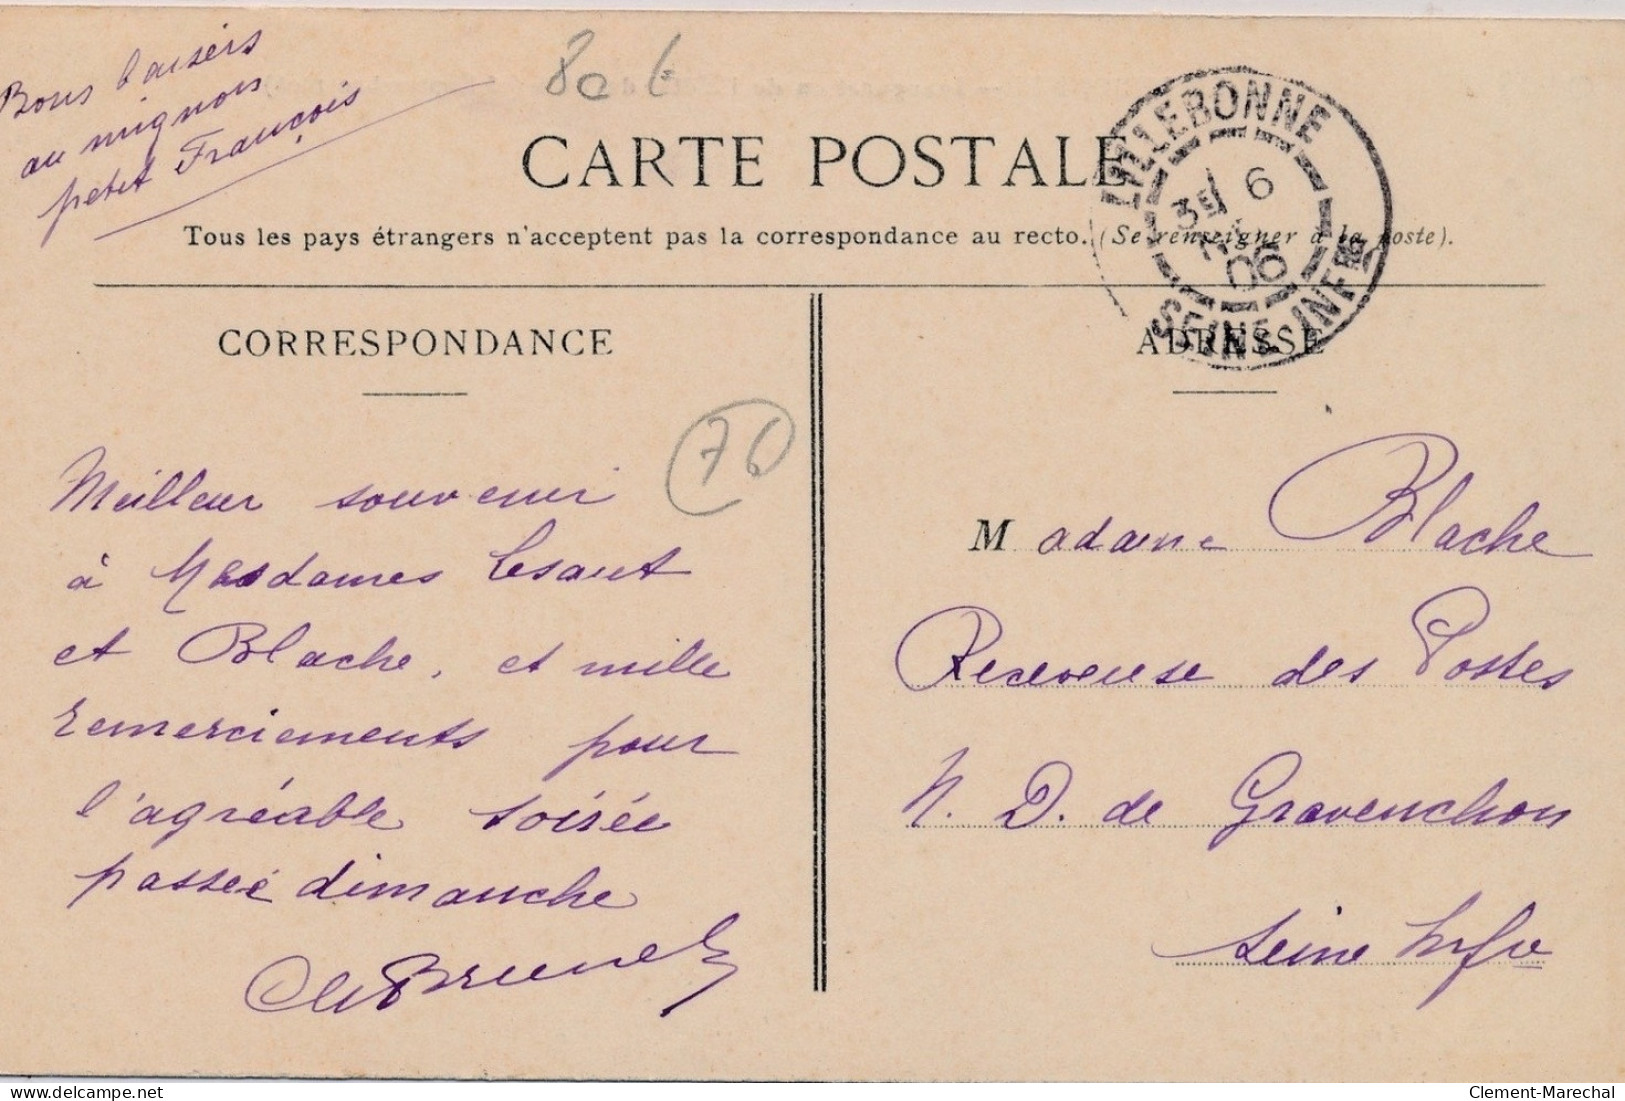 Bons baisers
au mignon
petit François
80 6
CARTE POSTALE
Tous les pays étrangers n'acceptent pas la correspondance au recto. (Se renseigner à la poste).
LILLEBONNE
3E 6
06
SEINE INFRE
CORRESPONDANCE
76
Meilleur souvenir
à Mesdames Lesaut
et Blache, et mille
remerciements pour
l'agréable soirée
passée dimanche
Brunel
ADRESSE
Madame Blache
Receveuse des Postes
N. D. de Gravenchon
Seine Infre
delcampe.net
Clement-Marechal